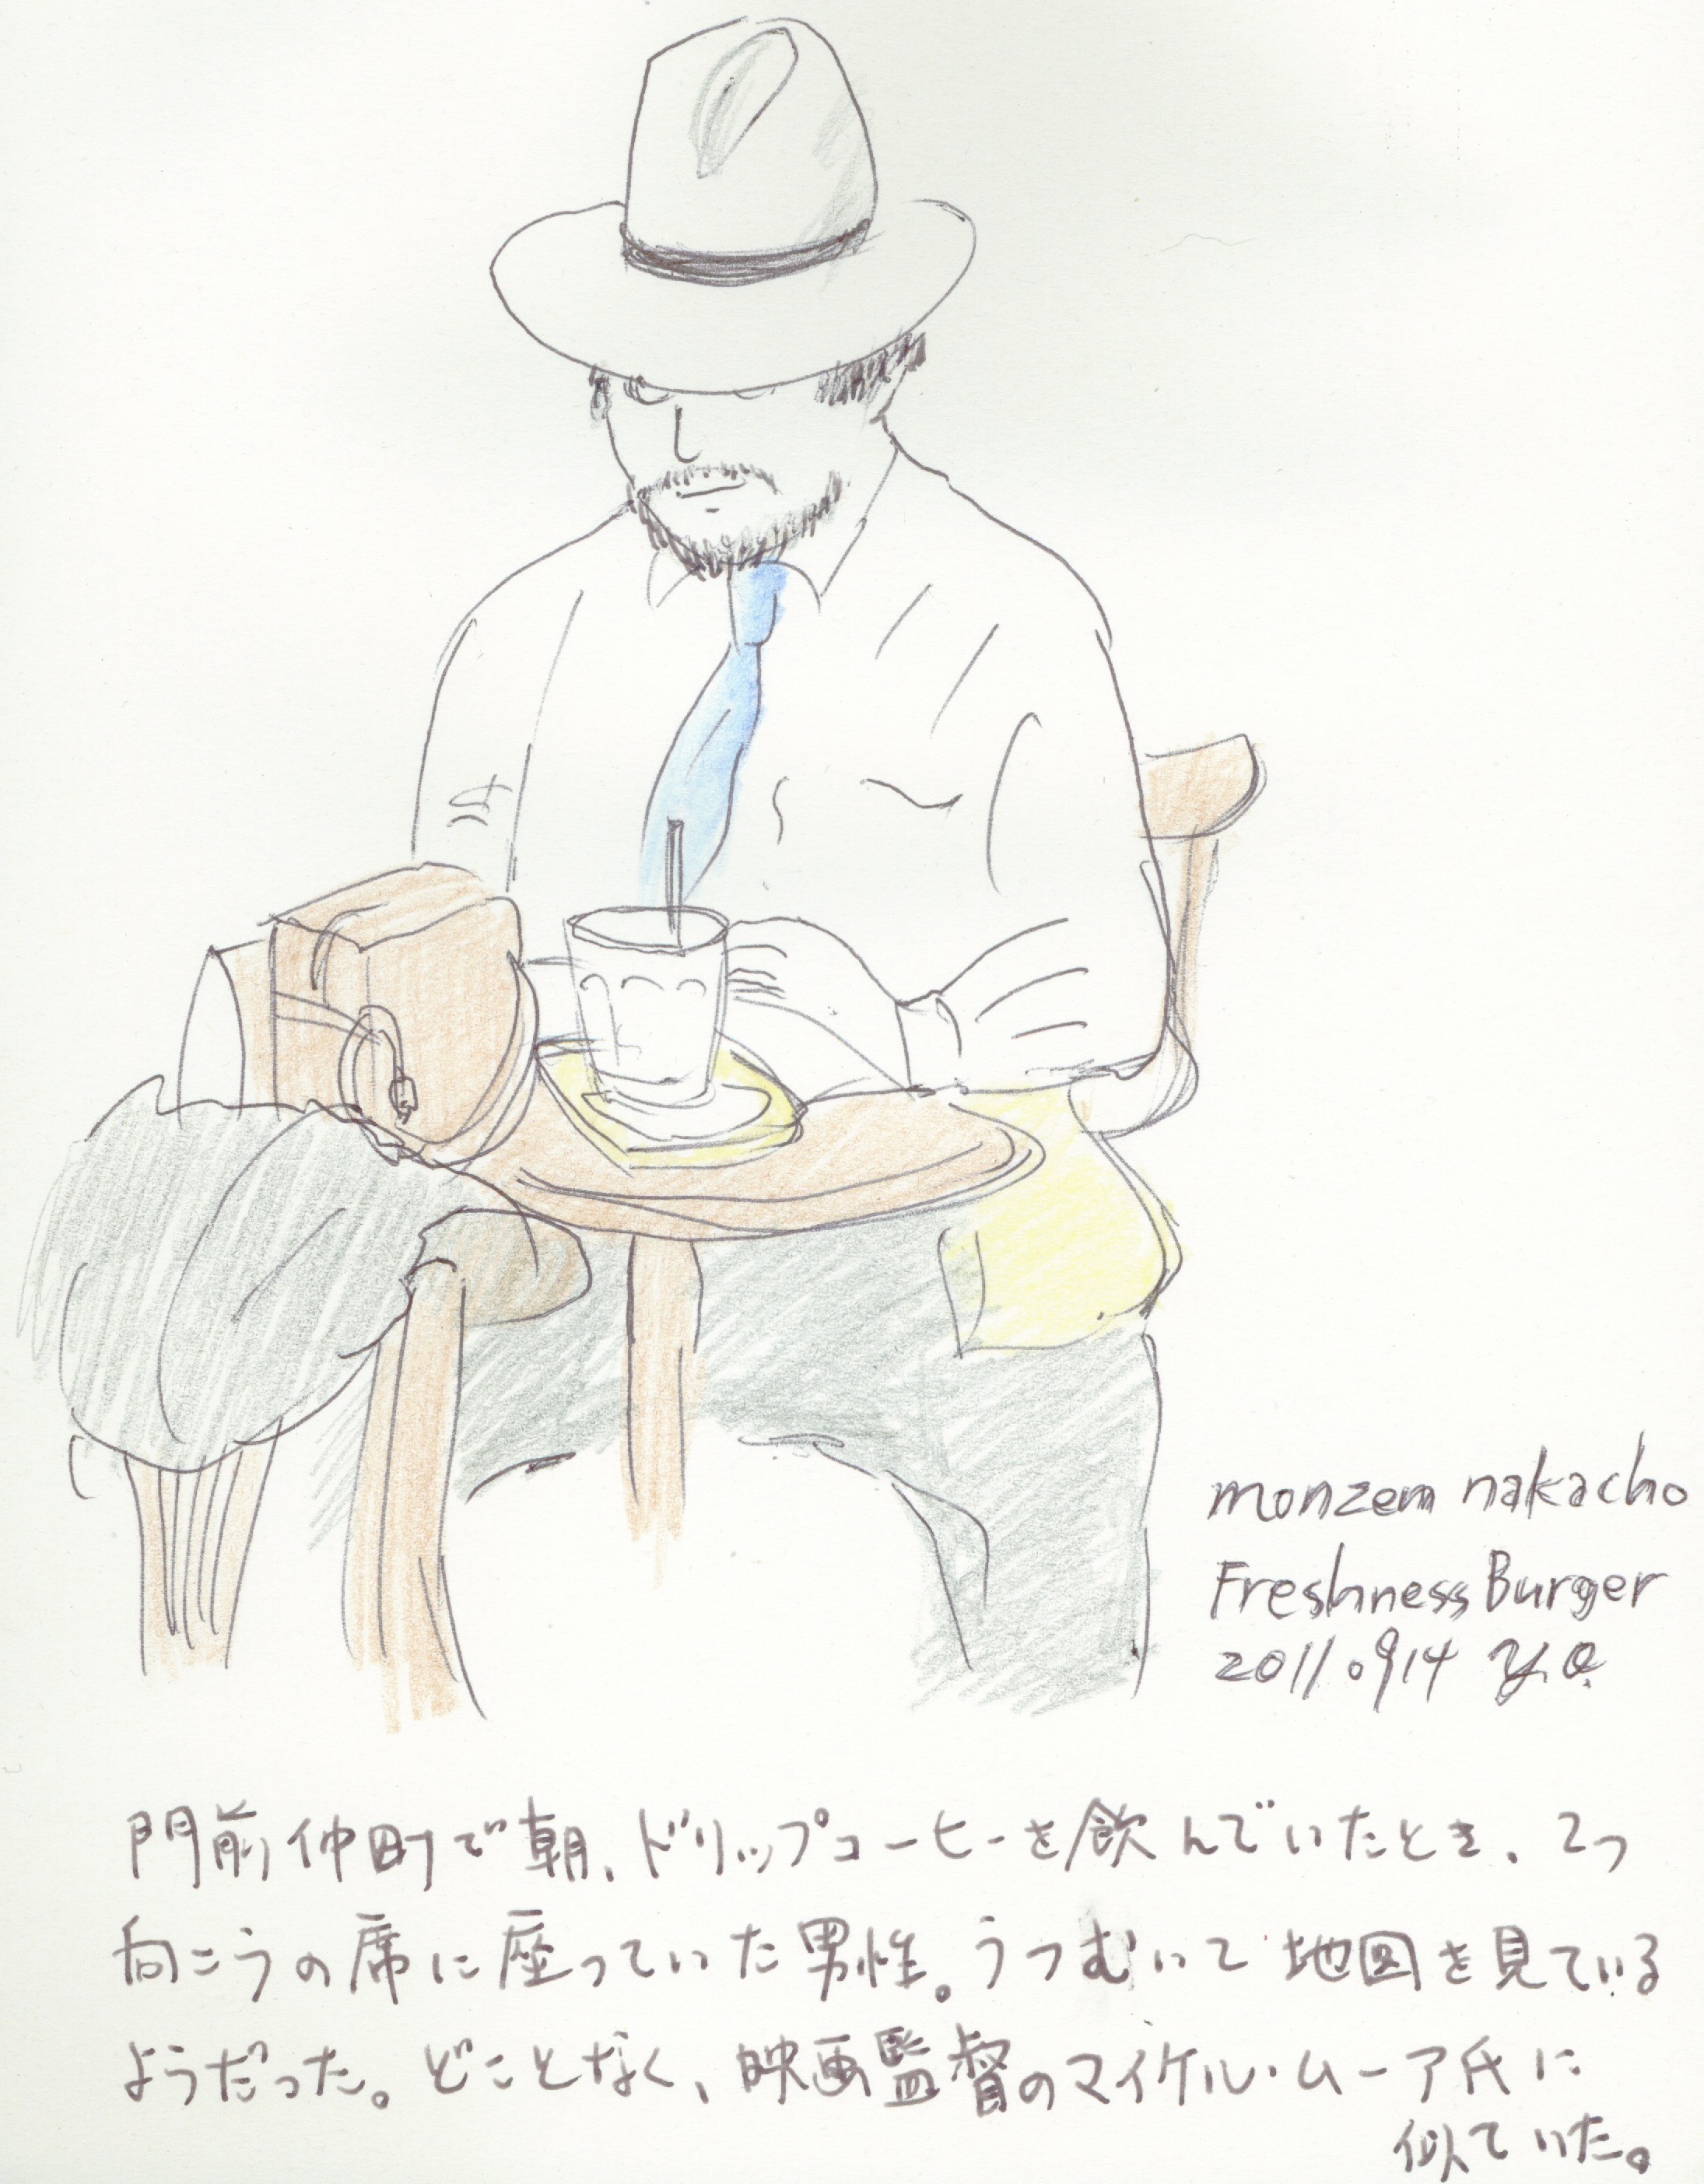 monzen nakacho
Freshness Burger
2011.914 Y.O.
門前仲町で朝、ドリップコーヒーを飲んでいたとき、2つ
向こうの席に座っていた男性。うつむいて地図を見ている
ようだった。どことなく、映画監督のマイケル・ムーア氏に
似ていた。